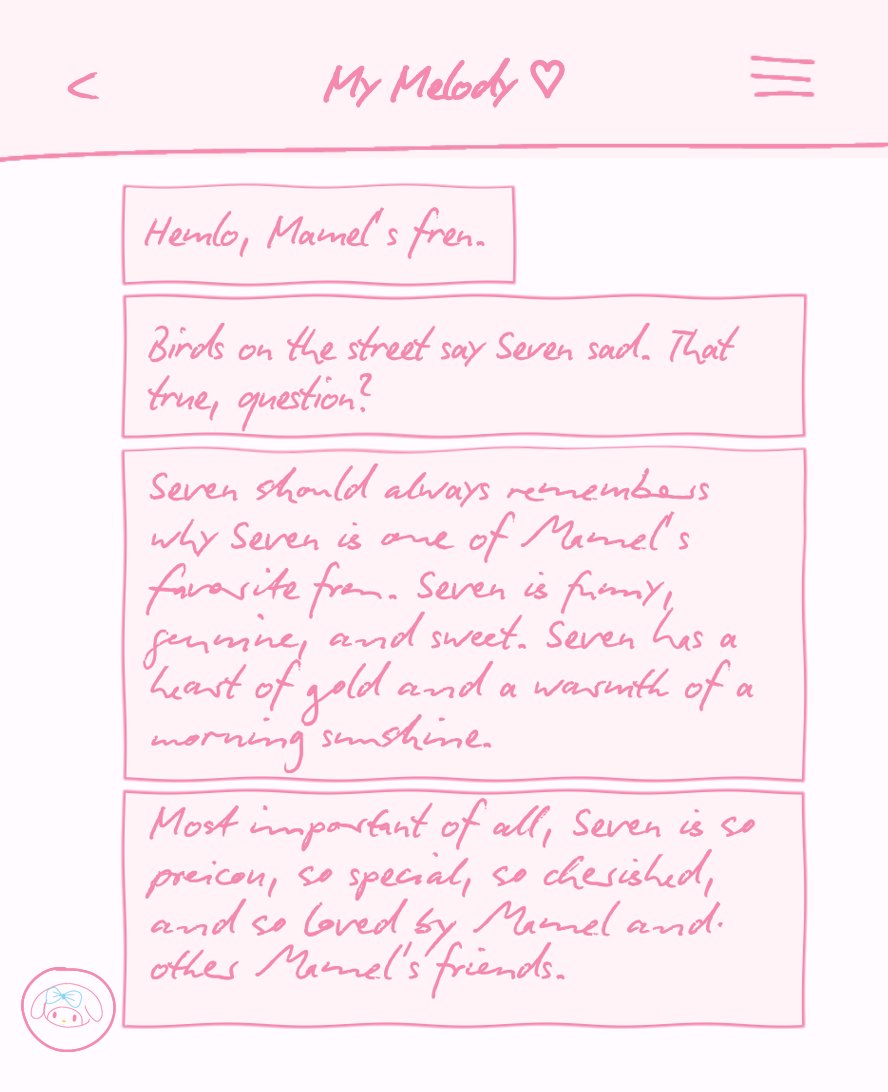 My Melody ♡
Hemlo, Mamel's fren.
Birds on the street say Seven sad. That
true, question?
Seven should always remembers
why Seven is one of Mamel's
favorite fren. Seven is funny,
genuine, and sweet. Seven has a
heart of gold and a warmth of a
morning sunshine.
Most important of all, Seven is so
preicou, so special, so cherished,
and so loved by Mamel and
other Mamel's friends.